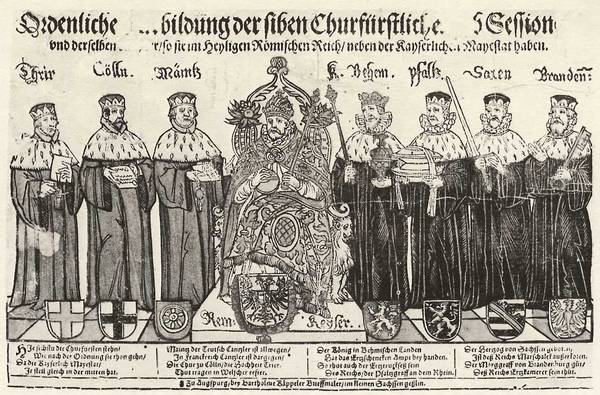 Ordenliche bildung der siben Churfürstliche Session
vnd derselben so sie im Heyligen Römischen Reich/ neben der Kayserlichen Mayestat haben.
Trier Cölln. Mäintz K. Behem. Pfaltz. Saxen Brandenn:
Rem. Keyser.
Hie sihstu die Churfürsten stehn/
Wie nach der Ordnung sie thon gehn/
Da die Kayserlich Mayestat/
Ie stetl gleich in der mitten hat.
Maintz der Teutsch Cantzler ist allwegen/
In Franckreich Cantzler ist dargegen/
Die Chur zu Cöln/ die Hochheit Trier
Thut tragen in Welscher refier.
Der König in Behmischen Landen
Hat das Ertzschencken Ampt bey handen.
So hat auch der Ertzdruchseß sein
Des Reichs/ der Pfaltzgraff an dem Rhein.
Der Hertzog von Sachssen geborn,
Ist deß Reichs Marschalck außerkoren.
Der Marggraff von Brandenburg gůt/
Deß Reichs Ertzkamerer sein thůt.
Zu Augspurg/ bey Bartholme Käppeler Brieffmaler/ im kleinen Sachssen geßlin.